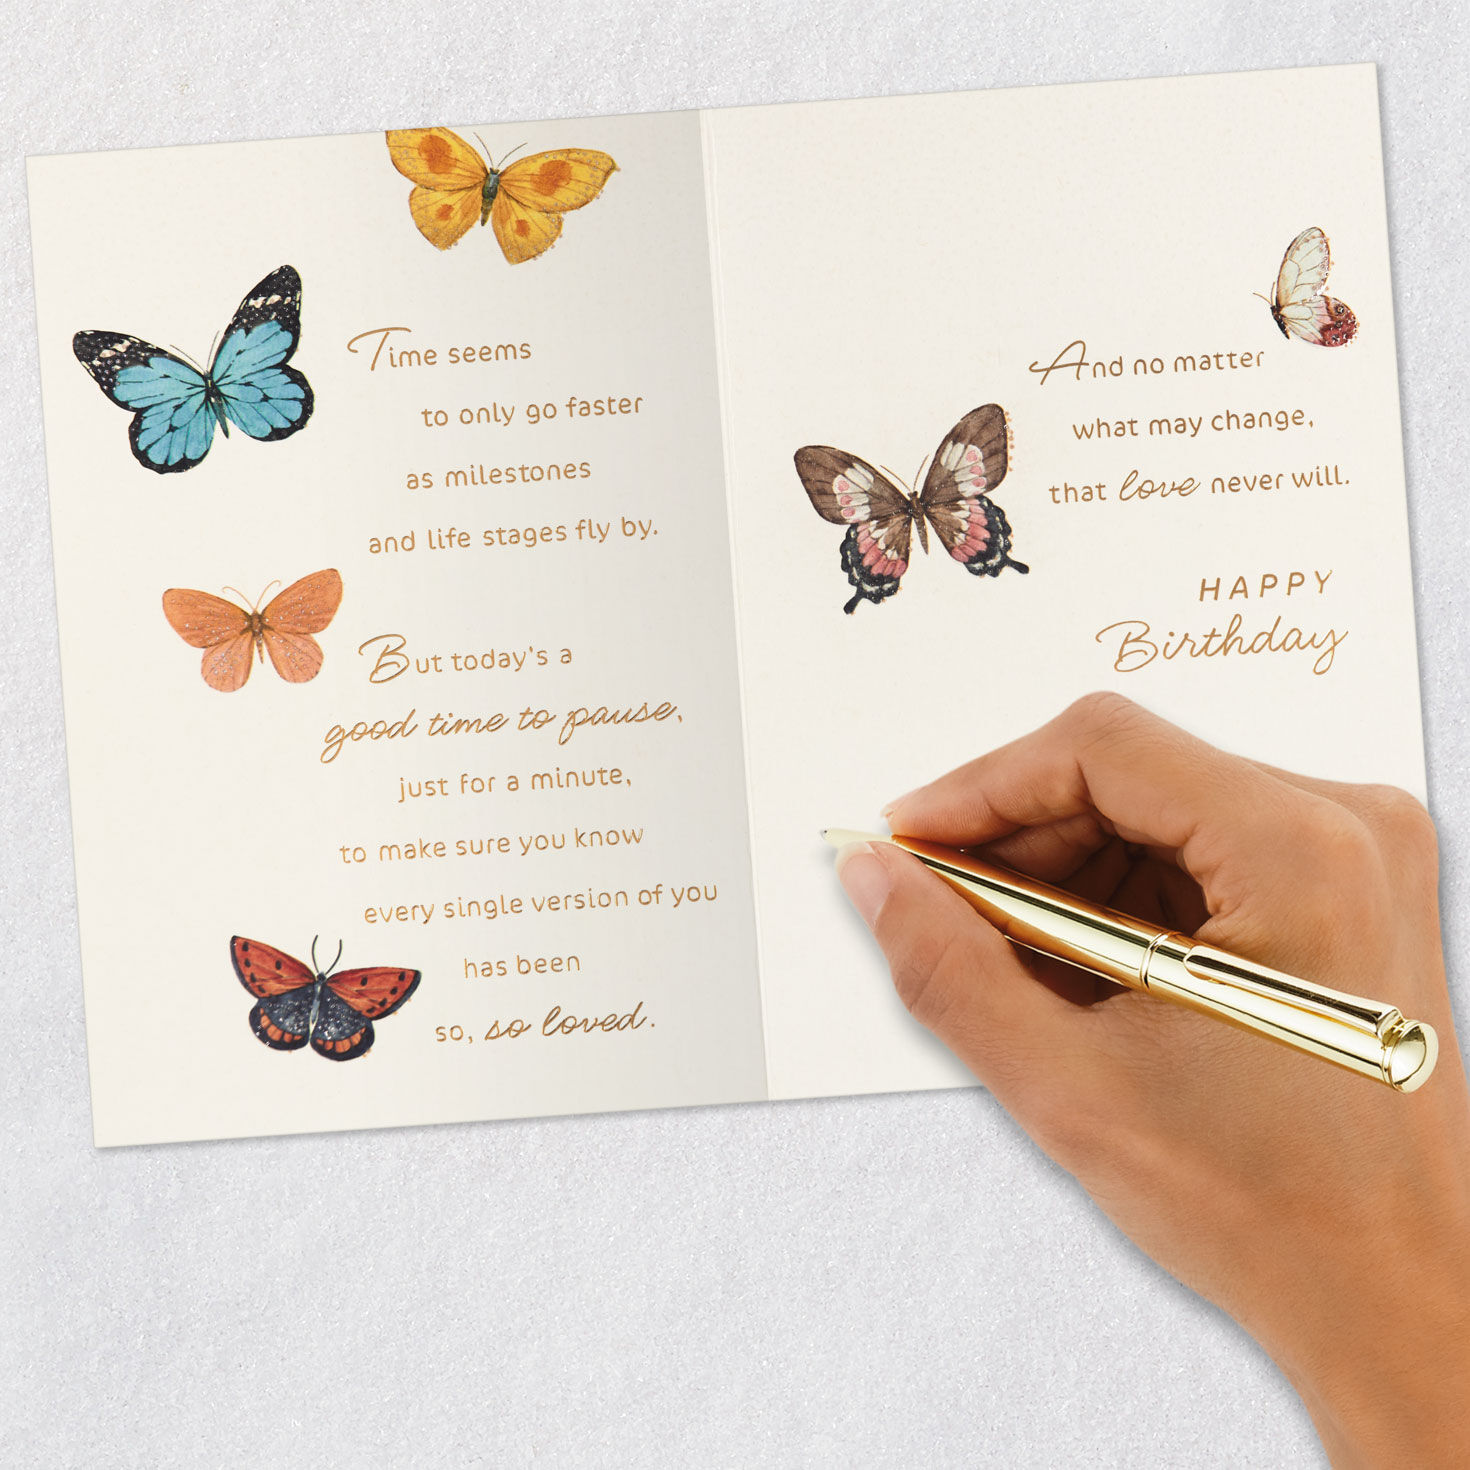 Time seems
to only go faster
as milestones
and life stages fly by.
But today's a
good time to pause,
just for a minute,
to make sure you know
every single version of you
has been
so, so loved.
And no matter
what may change,
that love never will.
HAPPY
Birthday